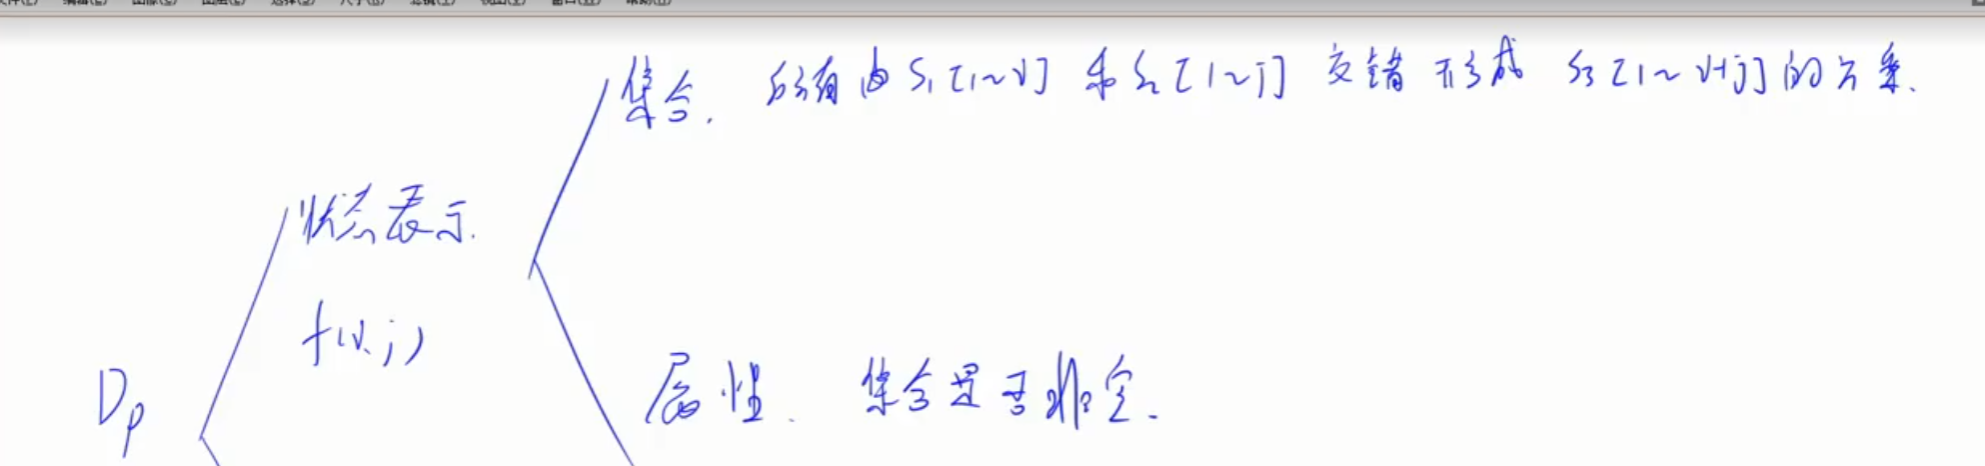 集合. 所有由S1[1~i]和S2[1~j]交错形成S3[1~i+j]的方案.
状态表示.
f(i,j)
Dp
属性. 集合是否非空.